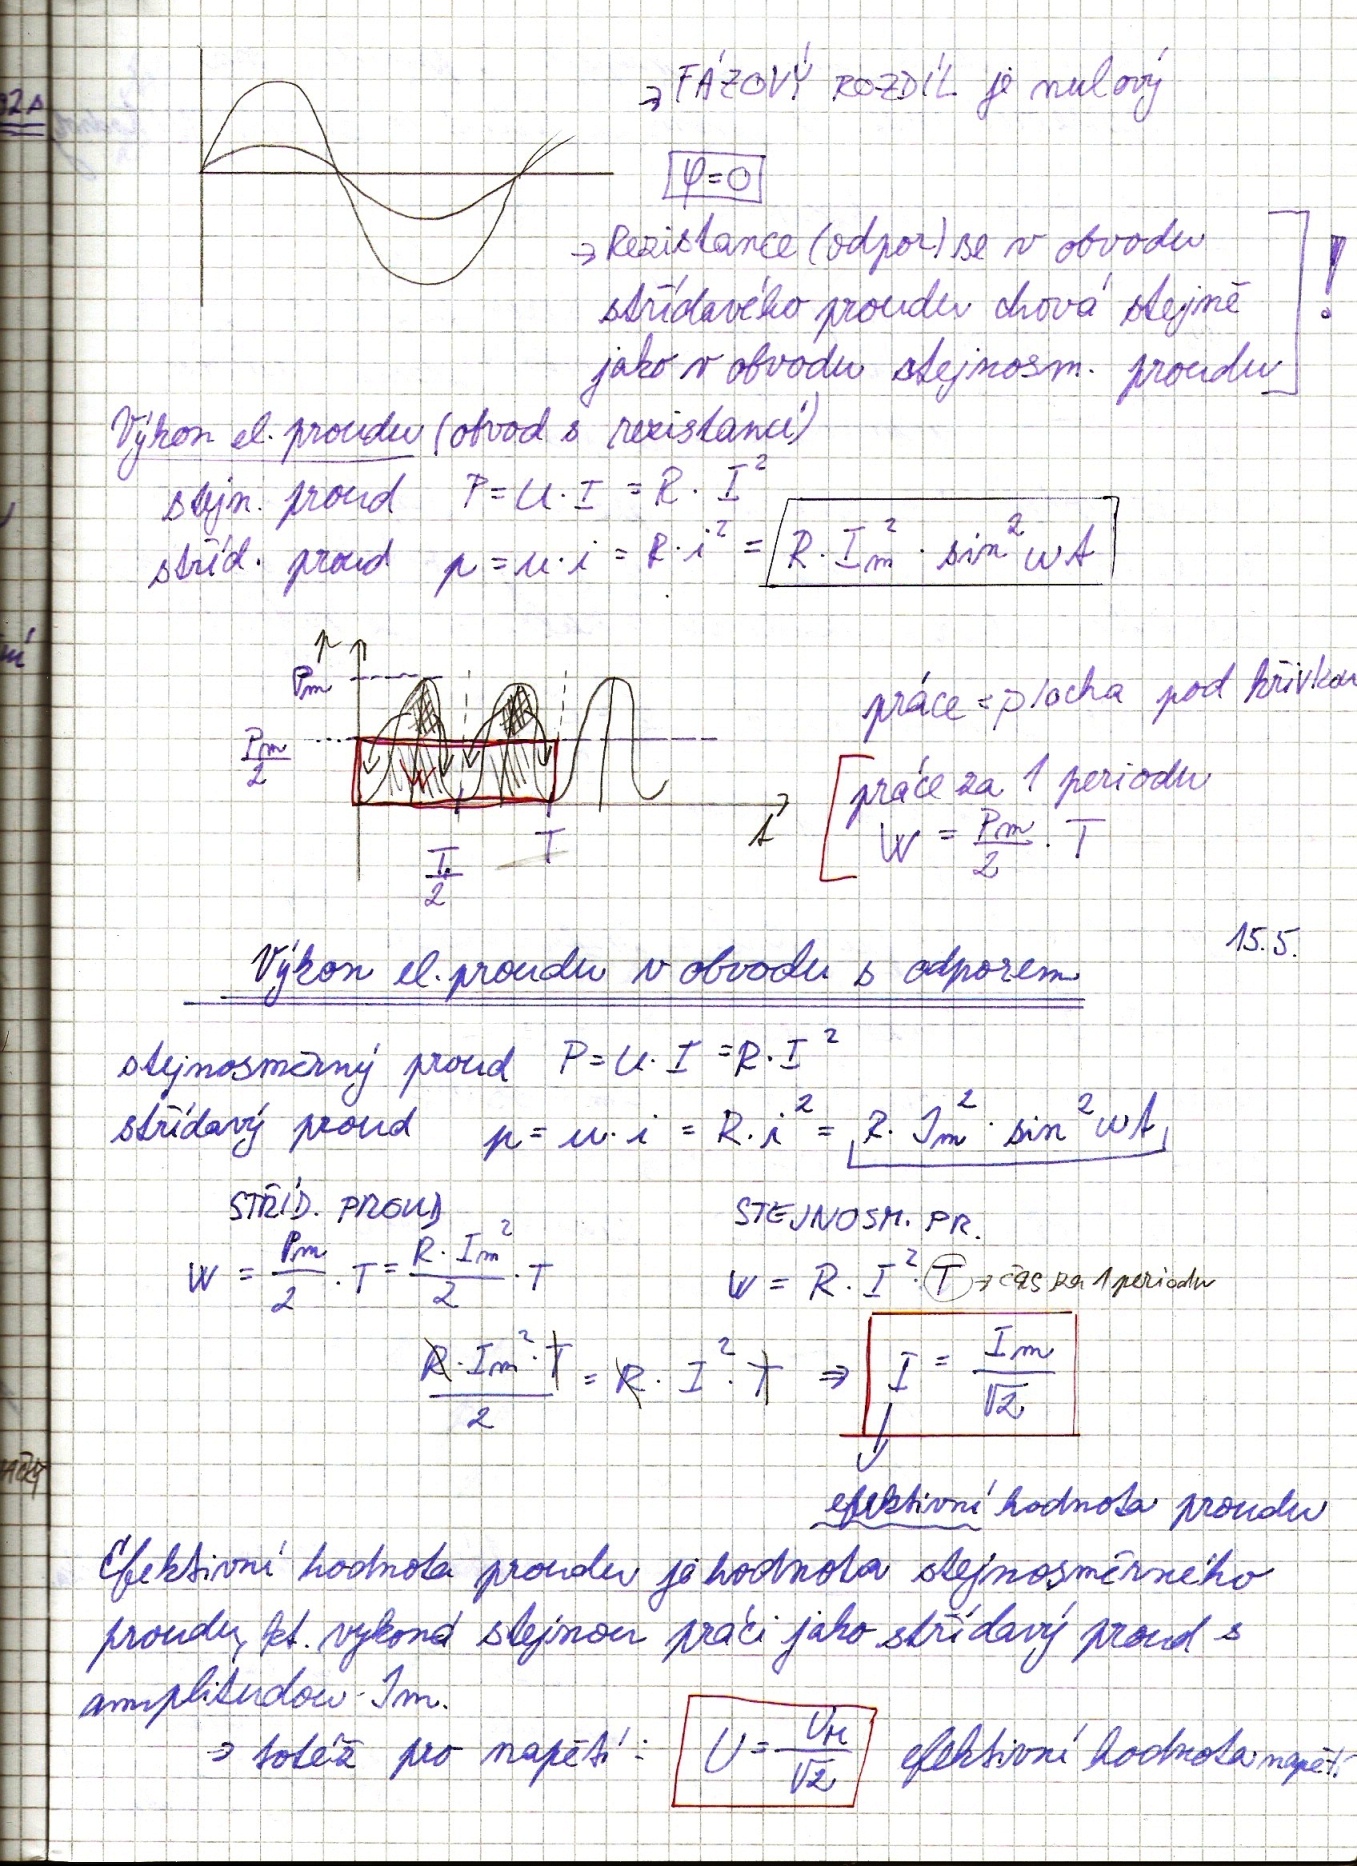 → FÁZOVÝ ROZDÍL je nulový
φ=0
→ Rezistance (odpor) se v obvodu
střídavého proudu chová stejně
jako v obvodu stejnosm. proudu
!
Výkon el. proudu (obvod s rezistancí)
stejn. proud P = U · I = R · I²
stříd. proud p = u · i = R · i² = R · Im² · sin² ωt
p
Pm
Pm/2
W
T/2
T
t
práce = plocha pod křivkou
práce za 1 periodu
W = Pm/2 · T
15.5.
Výkon el. proudu v obvodu s odporem
stejnosměrný proud P = U · I = R · I²
střídavý proud p = u · i = R · i² = R · Im² · sin² ωt
STŘÍD. PROUD STEJNOSM. PR.
W = Pm/2 · T = R · Im²/2 · T W = R · I² · T → čas za 1 periodu
R · Im² · T/2 = R · I² · T ⇒ I = Im/√2
efektivní hodnota proudu
Efektivní hodnota proudu je hodnota stejnosměrného
proudu, kt. vykoná stejnou práci jako střídavý proud s
amplitudou Im.
→ totéž pro napětí: U = UM/√2 efektivní hodnota napětí